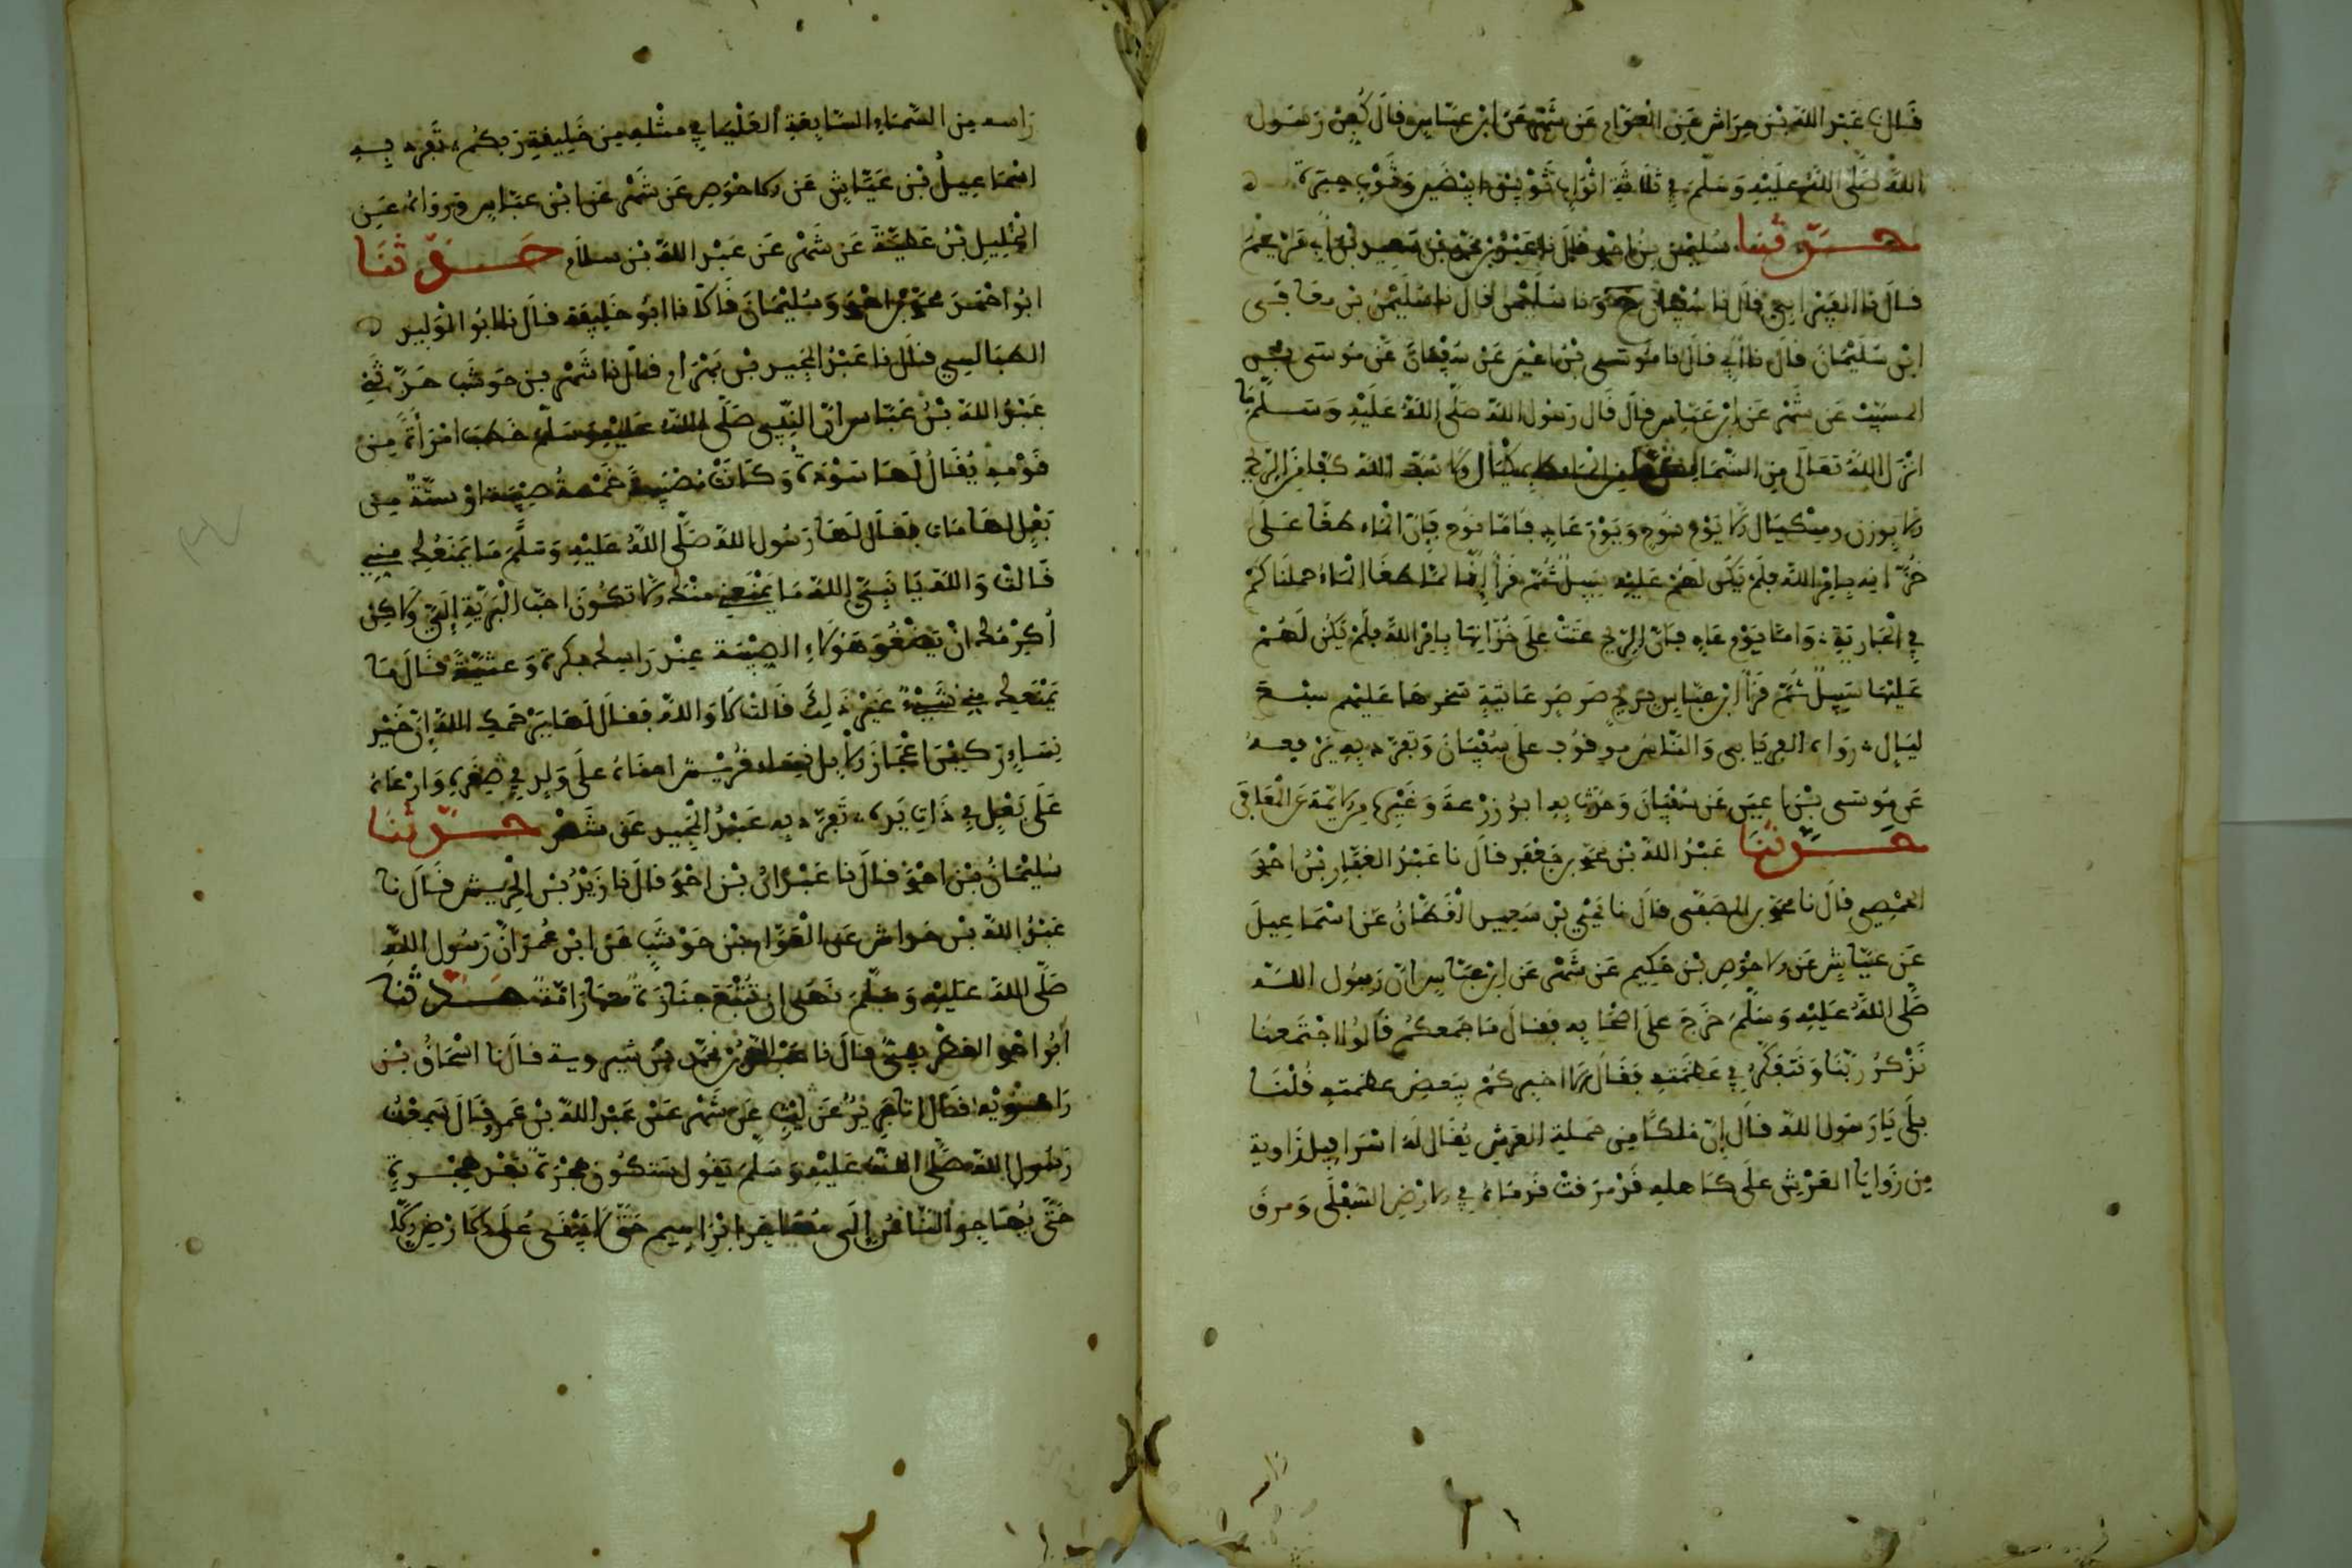 قال نا عبد الله بن خراش عن العوام عن شهر عن ابن عباس قال كفن رسول
الله صلى الله عليه وسلم في ثلاثة اثواب ثوبين ابيضين وثوب حبرة
حدثنا سليمن بن احمد قال نا عبد الله بن محمد بن سعيد بن أبي مريم
قال نا الفريابي قال نا سفيان ح ونا سليمن قال نا سليمن بن معافى
ابن سليمان قال نا أبي قال نا موسى بن اعين عن سفيان عن موسى بن
المسيب عن شهر عن ابن عباس قال قال رسول الله صلى الله عليه وسلم ما
انزل الله تعالى من السماء من الماء الا بمكيال ولا كفا من الريح
الا بوزن ومكيال الا يوم نوح ويوم عاد فاما نوح فان الماء طغا على
خزانه بامر الله فلم يكن لهم عليه سبيل ثم قرأ إنا لما طغا الماء حملناكم
في الجارية واما يوم عاد فان الريح عتت على خزانها بامر الله فلم يكن لهم
عليها سبيل ثم قرأ ابن عباس بريح صرصر عاتية سخرها عليهم سبع
ليال رواه الفريابي والناس موقوف على سفيان وتفرد به برفعه
عن موسى بن اعين عن سفيان وحدث به ابو زرعة وغيره من الائمة عن المعافى
حدثنا عبد الله بن محمد بن جعفر قال نا عبد الغفار بن احمد
الحمصي قال نا محمد بن المصفى قال نا يحيى بن سعيد القطان عن اسماعيل
عن عياش عن الاحوص بن حكيم عن شهر عن ابن عباس ان رسول الله
صلى الله عليه وسلم خرج على اصحابه فقال ما جمعكم قالوا اجتمعنا
نذكر ربنا ونتفكر في عظمته فقال الا اخبركم ببعض عظمته قلنا
بلى يا رسول الله قال إن ملكا من حملة العرش يقال له اسرافيل زاوية
من زوايا العرش على كاهله قد مرقت قدماه في الارض السفلى ومرق
راسه من السماء السابعة العليا في مثله من خليقة ربكم تفرد به
اسماعيل بن عياش عن الاحوص عن شهر عن ابن عباس ورواه عن
الجليل بن عطية عن شهر عن عبد الله بن سلام حدثنا
ابو احمد محمد بن احمد وسليمان قالا نا ابو خليفة قال نا ابو الوليد
الطيالسي قال نا عبد الحميد بن بهرام قال نا شهر بن حوشب حدثني
عبد الله بن عباس ان النبي صلى الله عليه وسلم خطب امرأة من
قومه يقال لها سودة وكانت مصبية خمسة صبية او ستة من
بعل لها مات فقال لها رسول الله صلى الله عليه وسلم ما يمنعك مني
قالت والله يا نبي الله ما يمنعني منك الا تكون احب البرية إلي ولاكن
أكرمك ان يضغو هؤلاء الصبية عند راسك بكرة وعشية فقال ما
يمنعك مني شيء غير ذلك قالت لا والله فقال لها يرحمك الله إن خير
نساء ركبن اعجاز الابل نساء قريش احناه على ولد في صغره وارعاه
على بعل في ذات يده تفرد به عبد الحميد عن شهر حدثنا
سليمان بن احمد قال نا عبدان بن احمد قال نا زيد بن الحريش قال نا
عبد الله بن خراش عن العوام بن حوشب عن ابن عمر ان رسول الله
صلى الله عليه وسلم نهى ان تتبع جنازة معها رانة حدثنا
أبو احمد قال نا عبد الله بن محمد بن شيروية قال نا اسحاق بن
راهويه قال انا جرير عن ليث عن شهر عن عبد الله بن عمرو قال سمعت
رسول الله صلى الله عليه وسلم يقول ستكون هجرة بعد هجرة
حتى يهاجر الناس إلى مهاجر ابراهيم حتى لا يبقى على الارض الا